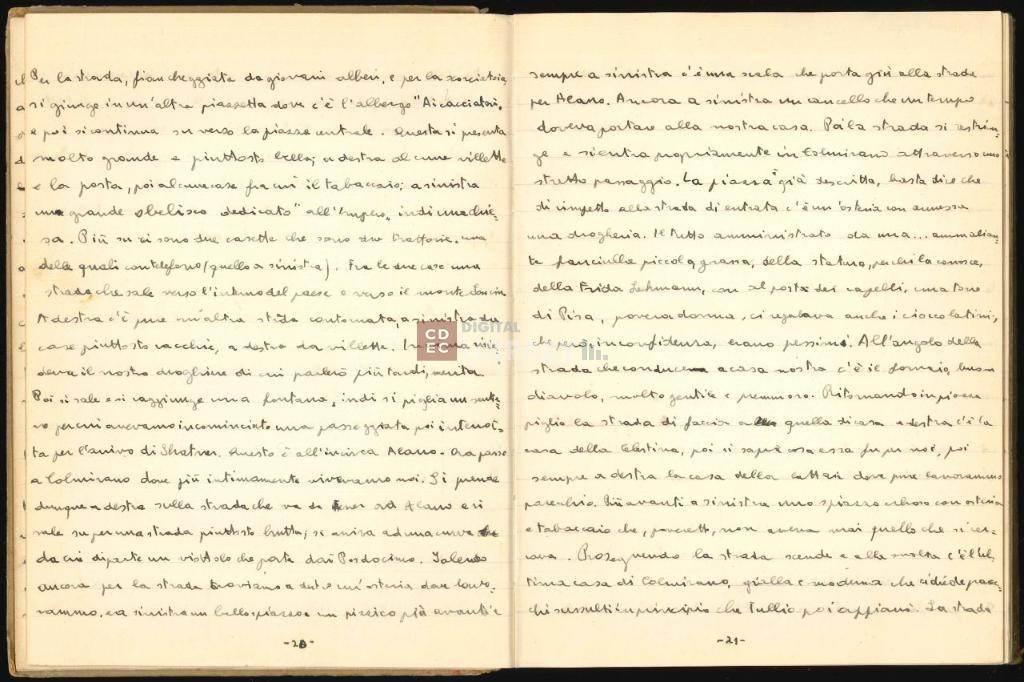 Per la strada, fiancheggiata da giovani alberi, e per la scorciatoia
si giunge in un'altra piazzetta dove c'è l'albergo "Ai cacciatori,
e poi si continua su verso la piazza centrale. Questa si presenta
molto grande e piuttosto bella; a destra alcune villette
e la posta, poi alcune case fra cui il tabaccaio; a sinistra
un grande obelisco dedicato "all'Impero, indi una chie-
sa. Più su vi sono due casette che sono due trattorie. una
delle quali con telefono (quello a sinistra). Fra le due case una
strada che sale verso l'interno del paese e verso il monte
A destra c'è pure un'altra strada contornata, a sinistra da
case piuttosto vecchie, a destra da villette. In
il nostro droghiere di cui parlerò più tardi,
Poi si sale e si raggiunge una fontana, indi si piglia un sentie-
ro per cui avevamo incominciato una passeggiata poi interrot-
ta per l'arrivo di Questo è all'incirca Alano. Ora passo
a Colmirano dove più intimamente vivevamo noi. Si prende
dunque a destra sulla strada che va ad Alano e si
sale su per una strada piuttosto brutta; si arriva ad una curva
da cui diparte un viottolo che porta dai Perdocimo. Salendo
ancora per la strada troviamo a destra un'osteria dove lavo-
rammo. e a sinistra un bello piazzo e un pizzico più avanti e
-20-
sempre a sinistra c'è una scala che porta giù alla strada
per Alano. Ancora a sinistra un cancello che un tempo
doveva portare alla nostra casa. Poi la strada si restrin-
ge e si entra propriamente in Colmirano attraverso uno
stretto passaggio. La piazza già descritta, basta dire che
dirimpetto alla strada di entrata c'è un'osteria con annessa
una drogheria. Il tutto amministrato da una... ammalian-
te fanciulla piccola grassa, della statura, per chi la conosce,
della Frida Lehmann, con al posto dei capelli, una torre
di Pisa, povera donna, ci regalava anche i cioccolatini,
che però, in confidenza, erano pessimi. All'angolo della
strada che conduceva a casa nostra c'è il fornaio, buon
diavolo, molto gentile e premuroso. Ritornando in piazza
piglio la strada di faccia a quella di casa e destra c'è la
casa della Celestina, poi si saprà cosa essa fu per noi, poi
sempre a destra la casa della Cattai dove pure lavorammo
parecchio. Più avanti a sinistra uno spiazzo erboso con osteria
e tabaccaio che, poveretti, non aveva mai quello che si cer-
cava. Proseguendo la strada scende e alla svolta c'è l'ul-
tima casa di Colmirano, gialla e moderna che ci diede parec-
chi sussulti in principio che Tullio poi appianò. La strada
-21-
CDEC
DIGITAL